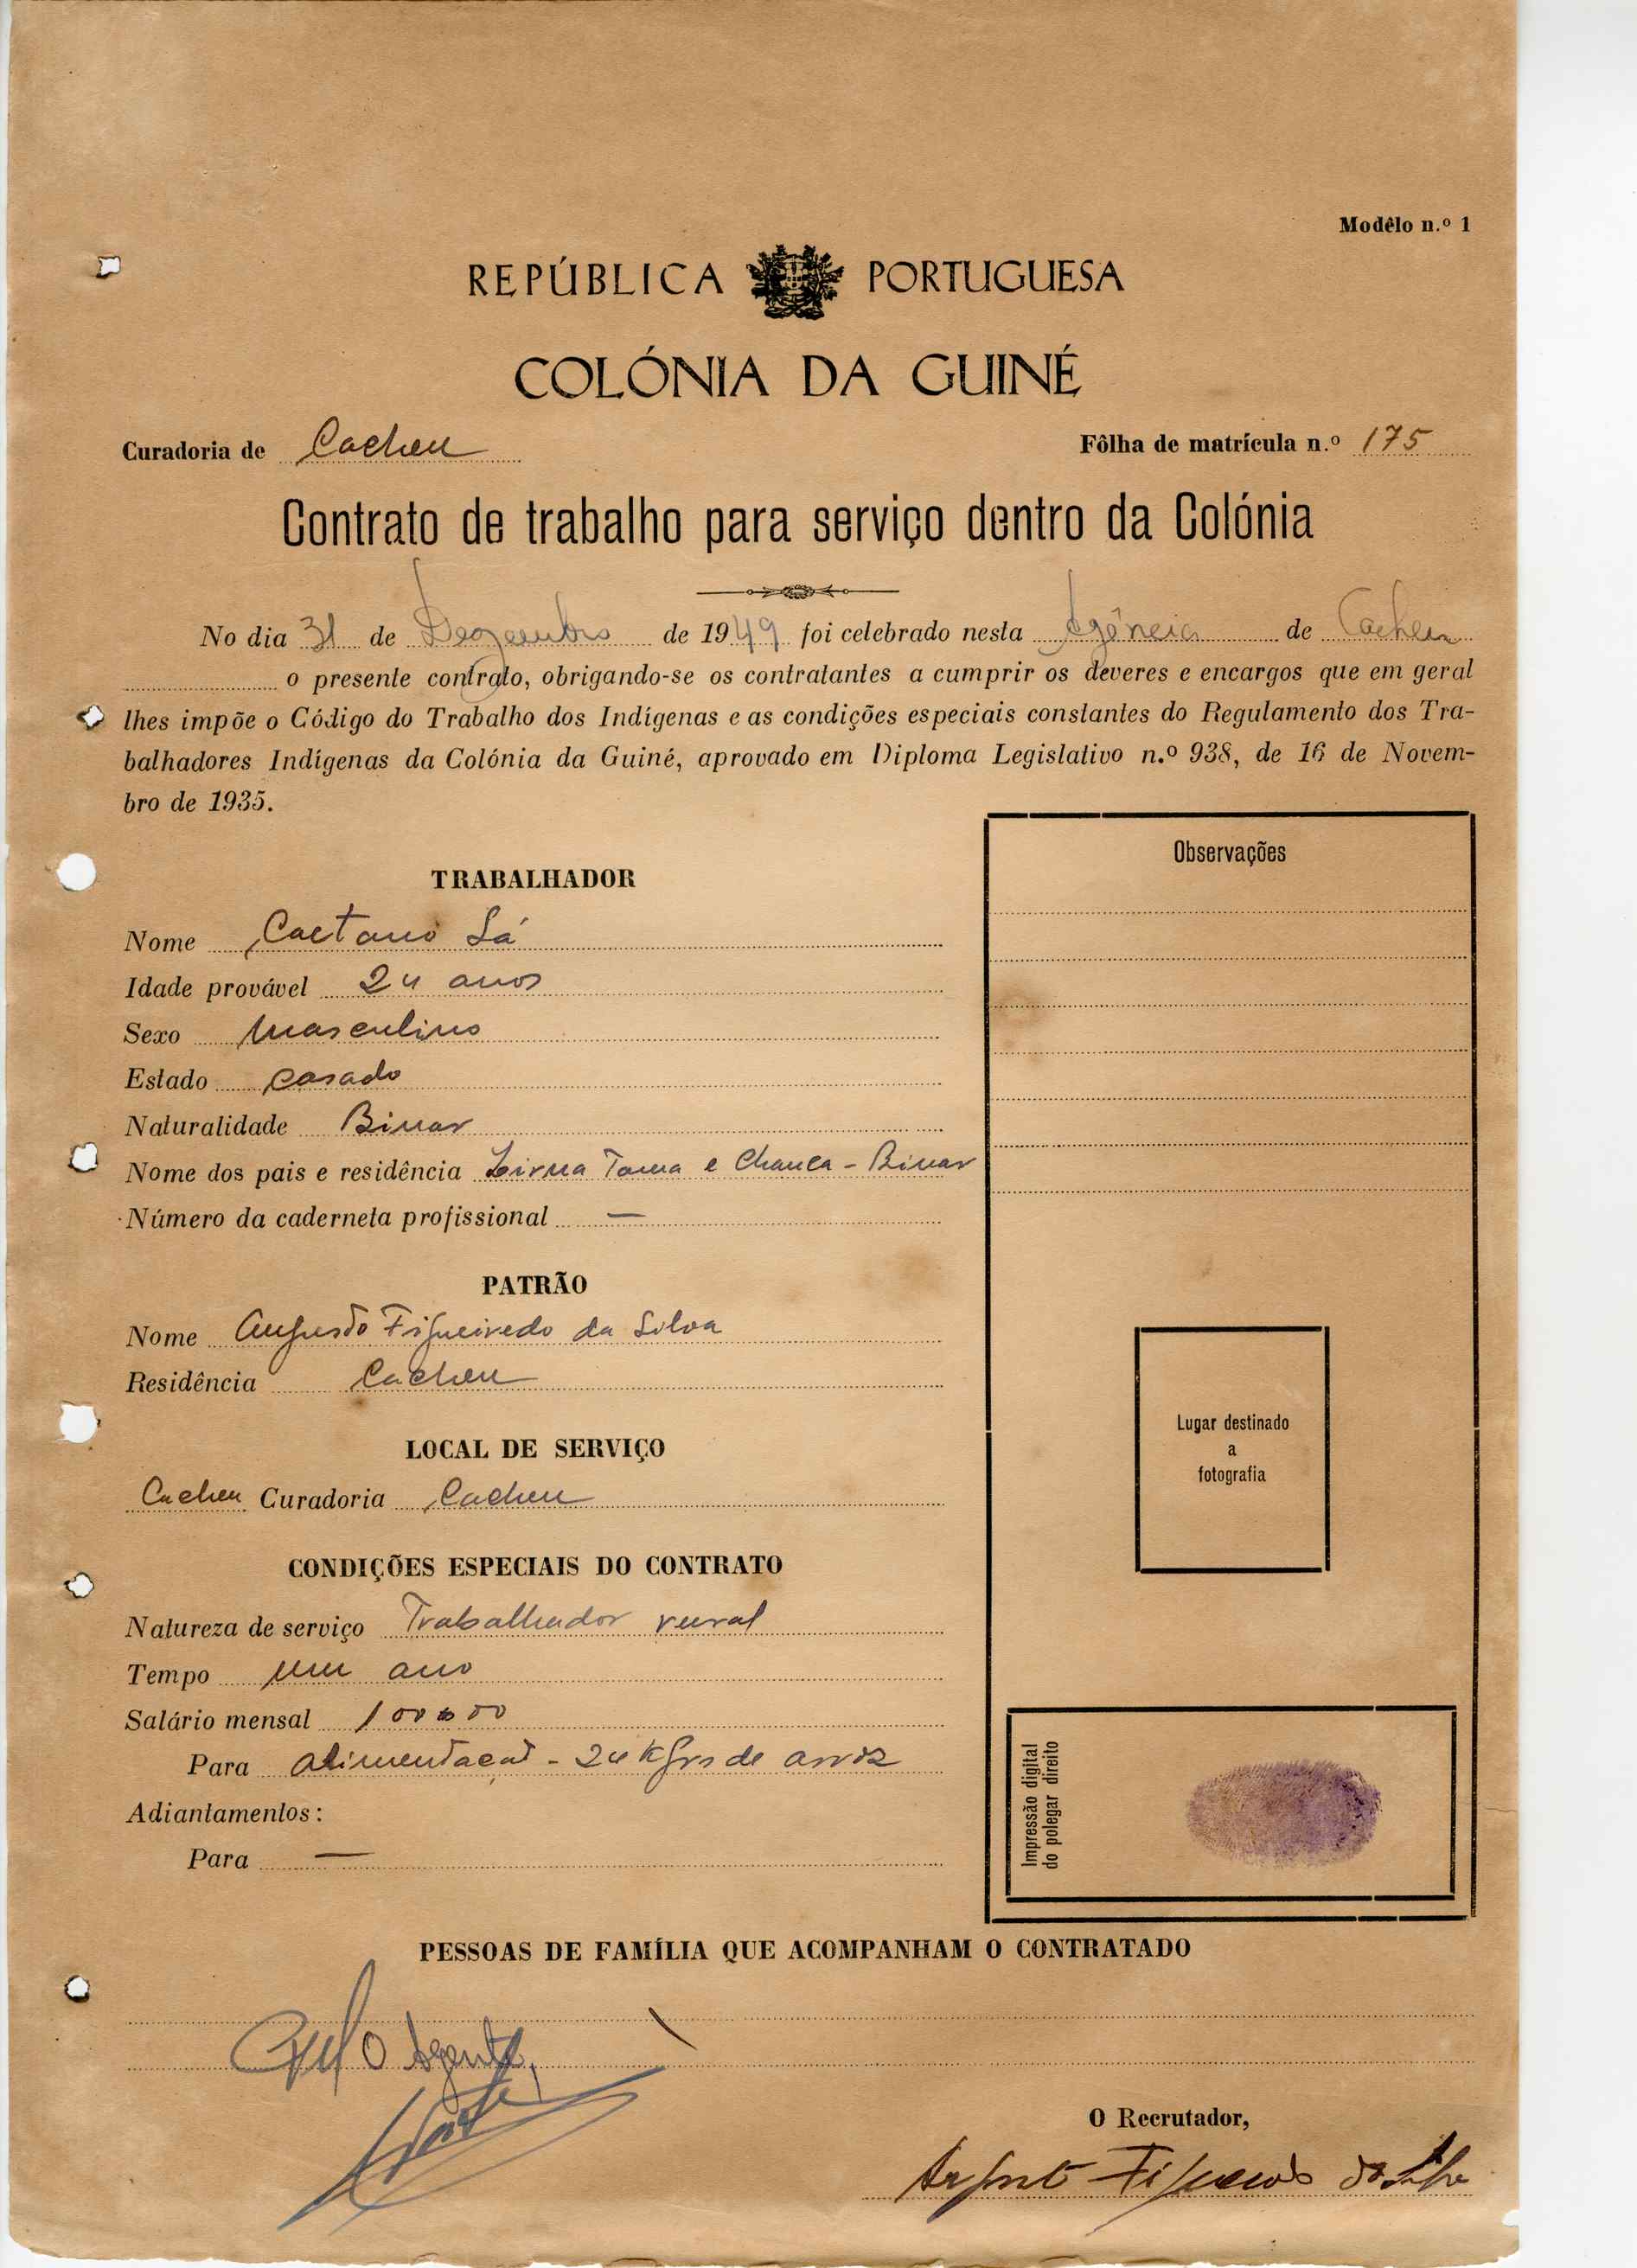 Modêlo n.º 1
REPÚBLICA PORTUGUESA
COLÓNIA DA GUINÉ
Curadoria de Cacheu Fôlha de matrícula n.º 175
Contrato de trabalho para serviço dentro da Colónia
No dia 31 de Dezembro de 1949 foi celebrado nesta Agência de Cacheu
o presente contrato, obrigando-se os contratantes a cumprir os deveres e encargos que em geral
lhes impõe o Código do Trabalho dos Indígenas e as condições especiais constantes do Regulamento dos Tra-
balhadores Indígenas da Colónia da Guiné, aprovado em Diploma Legislativo n.º 938, de 16 de Novem-
bro de 1935.
Observações
TRABALHADOR
Nome Caetano Sá
Idade provável 24 anos
Sexo Masculino
Estado casado
Naturalidade Binar
Nome dos pais e residência Tama e Chanca - Binar
Número da caderneta profissional —
PATRÃO
Nome Augusto Figueiredo da Silva
Residência Cacheu
Lugar destinado
a
fotografia
LOCAL DE SERVIÇO
Cacheu Curadoria Cacheu
CONDIÇÕES ESPECIAIS DO CONTRATO
Natureza de serviço Trabalhador rural
Tempo um ano
Salário mensal 100$00
Para alimentação - 24 Kgrs de arroz
Adiantamentos:
Para —
Impressão digital
do polegar direito
PESSOAS DE FAMÍLIA QUE ACOMPANHAM O CONTRATADO
O Agente,
O Recrutador,
Augusto Figueiredo da Silva